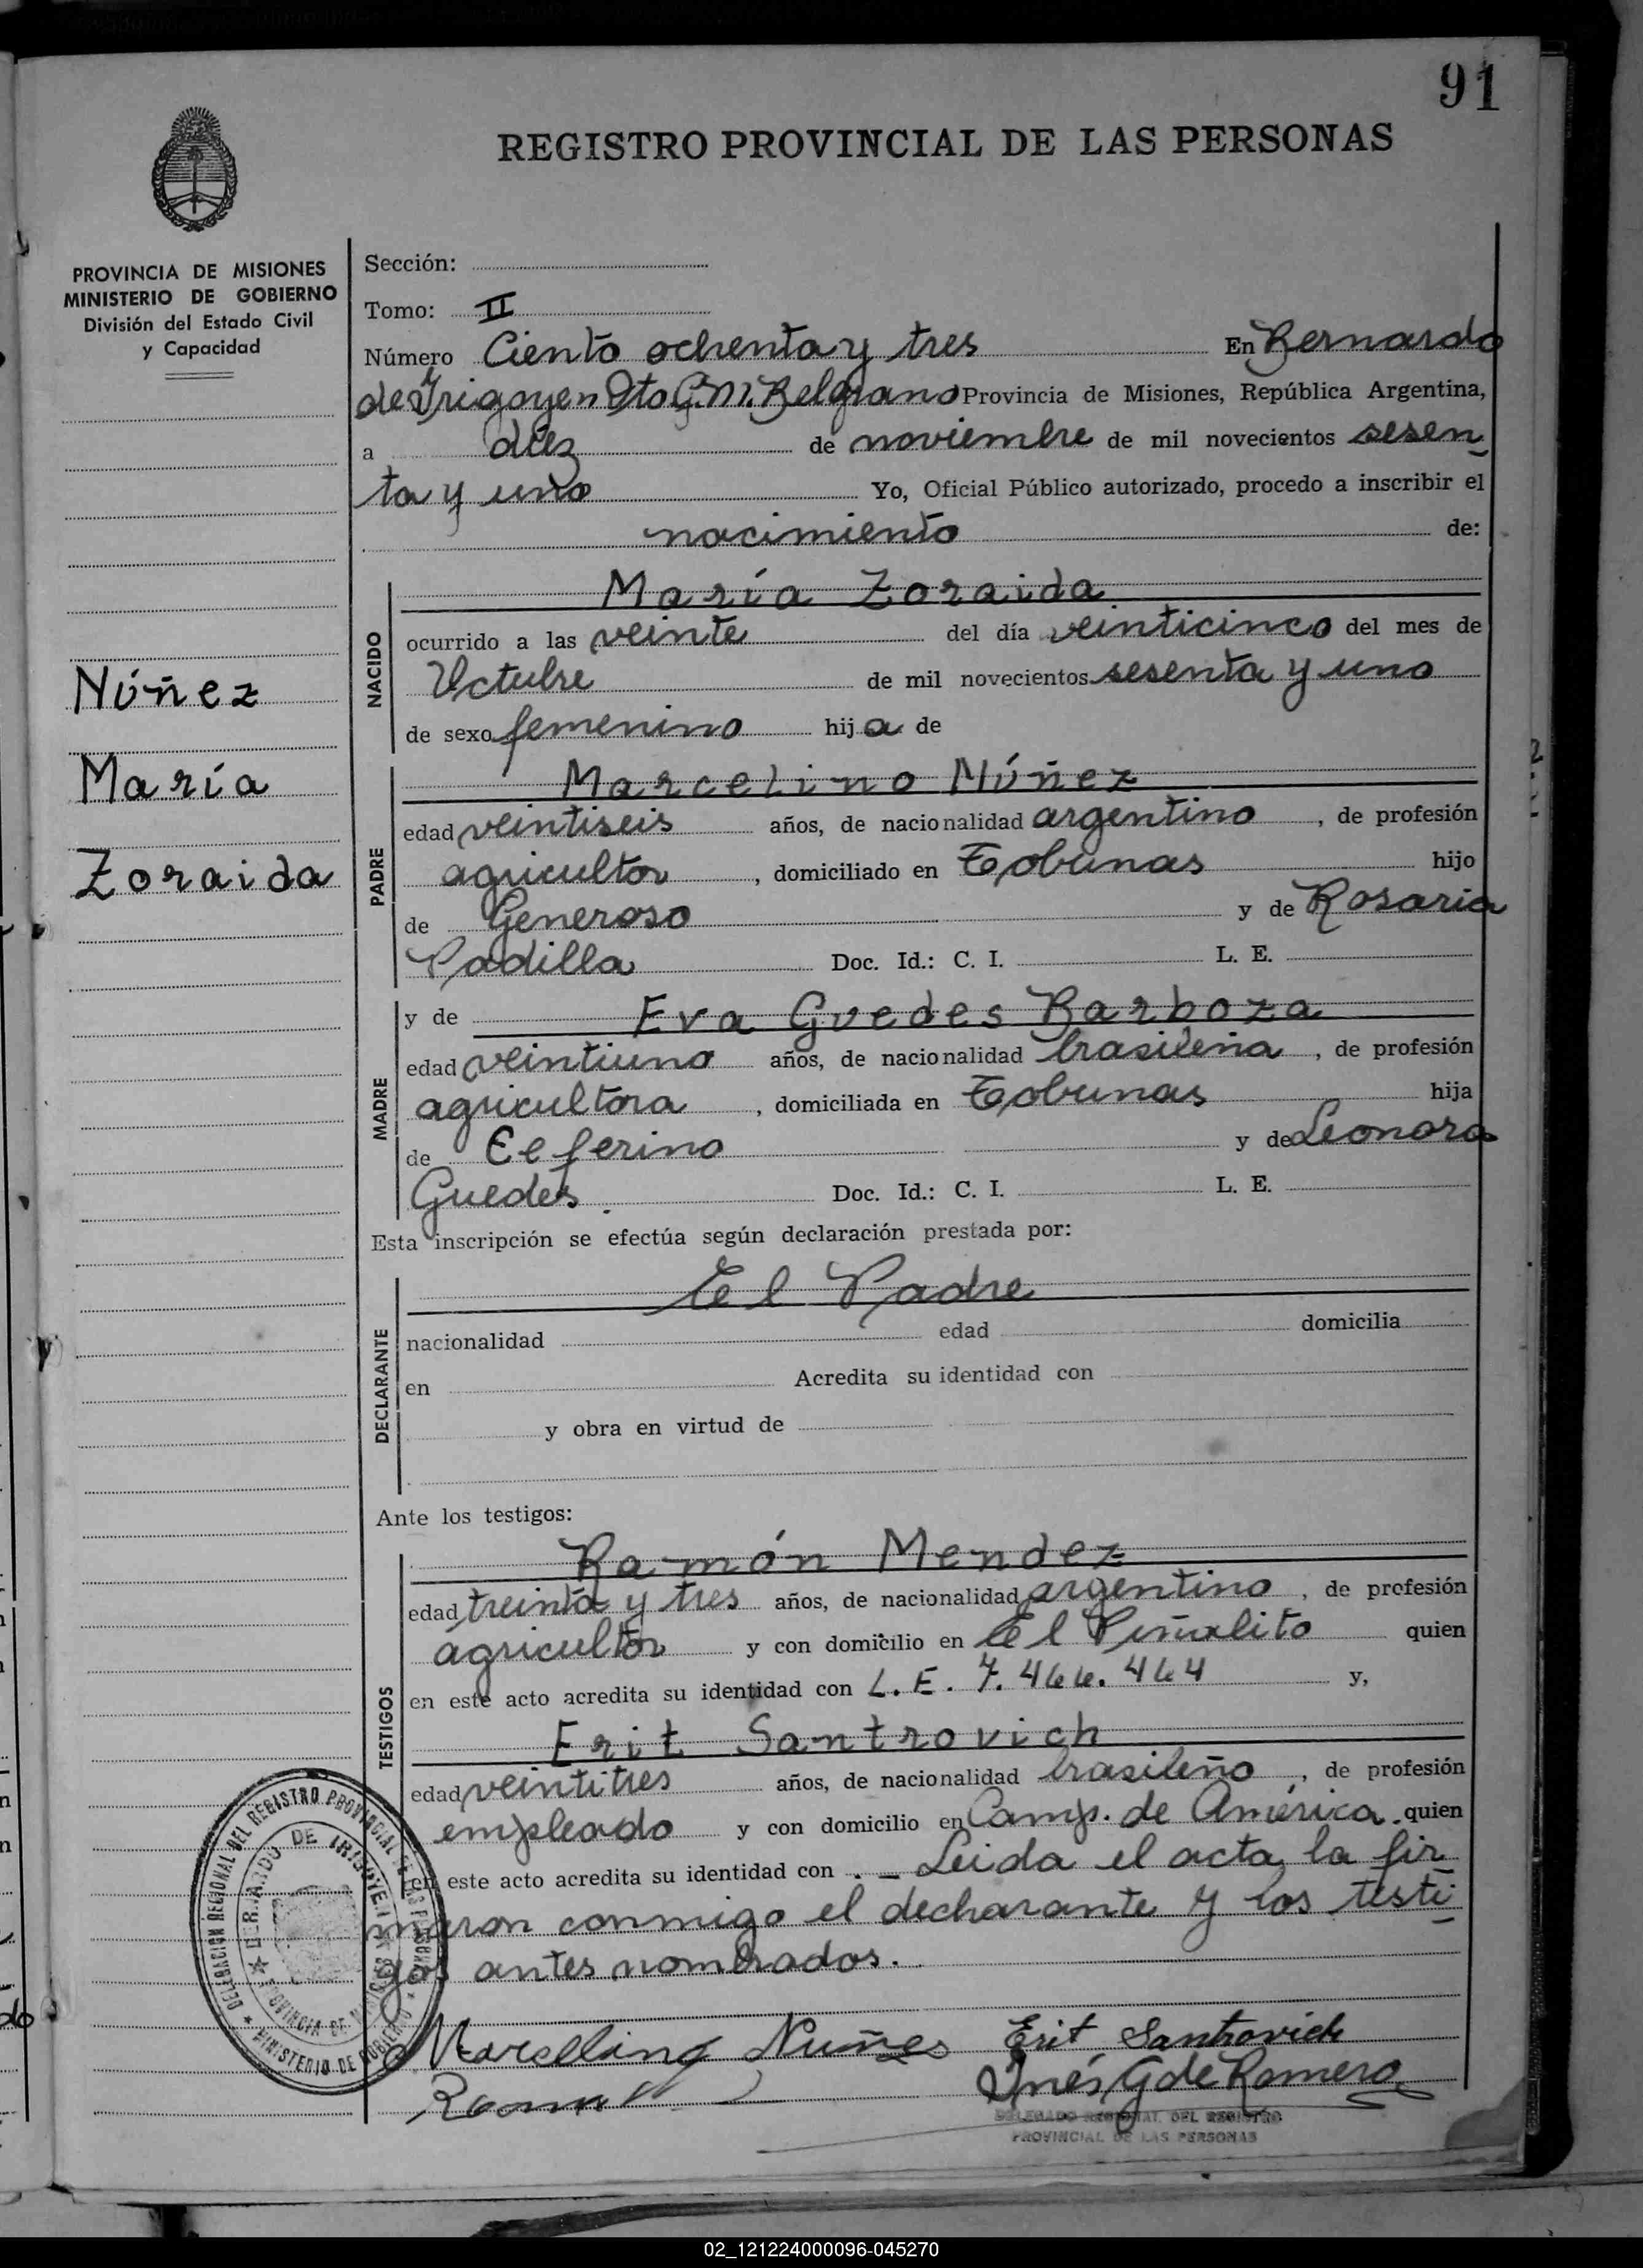 91
REGISTRO PROVINCIAL DE LAS PERSONAS
PROVINCIA DE MISIONES
MINISTERIO DE GOBIERNO
División del Estado Civil
y Capacidad
Núñez
María
Zoraida
Sección:
Tomo: II
Número Ciento ochenta y tres En Bernardo
de Irigoyen Dto G. M. Belgrano Provincia de Misiones, República Argentina,
a diez de noviembre de mil novecientos sesen
ta y uno Yo, Oficial Público autorizado, procedo a inscribir el
nacimiento de:
NACIDO
María Zoraida
ocurrido a las veinte del día veinticinco del mes de
Octubre de mil novecientos sesenta y uno
de sexo femenino hija de
PADRE
Marcelino Núñez
edad veintiseis años, de nacionalidad argentino, de profesión
agricultor, domiciliado en Tobunas hijo
de Generoso y de Rosaria
Padilla Doc. Id.: C. I. L. E.
MADRE
y de Eva Guedes Barboza
edad veintiuno años, de nacionalidad brasileña, de profesión
agricultora, domiciliada en Tobunas hija
de Ceferino y de Leonora
Guedes. Doc. Id.: C. I. L. E.
Esta inscripción se efectúa según declaración prestada por:
DECLARANTE
El Padre
nacionalidad edad domicilia
en Acredita su identidad con
y obra en virtud de
Ante los testigos:
TESTIGOS
Ramón Mendez
edad treinta y tres años, de nacionalidad argentino, de profesión
agricultor y con domicilio en El Piñalito quien
en este acto acredita su identidad con L. E. 7.466.464 y,
Erit Santrovich
edad veintitres años, de nacionalidad brasileño, de profesión
empleado y con domicilio en Camp. de América. quien
en este acto acredita su identidad con . _ Leida el acta, la fir
maron conmigo el decharante y los testi
gos antes nombrados.
DELEGACION REGIONAL DEL REGISTRO PROVINCIAL DE LAS PERSONAS
* MINISTERIO DE GOBIERNO *
BERNARDO DE IRIGOYEN
PROVINCIA DE MISIONES
Marcelino Nuñes Erit Santrovich
Ramon Inés G de Romero
DELEGADO REGIONAL DEL REGISTRO
PROVINCIAL DE LAS PERSONAS
02_121224000096-045270